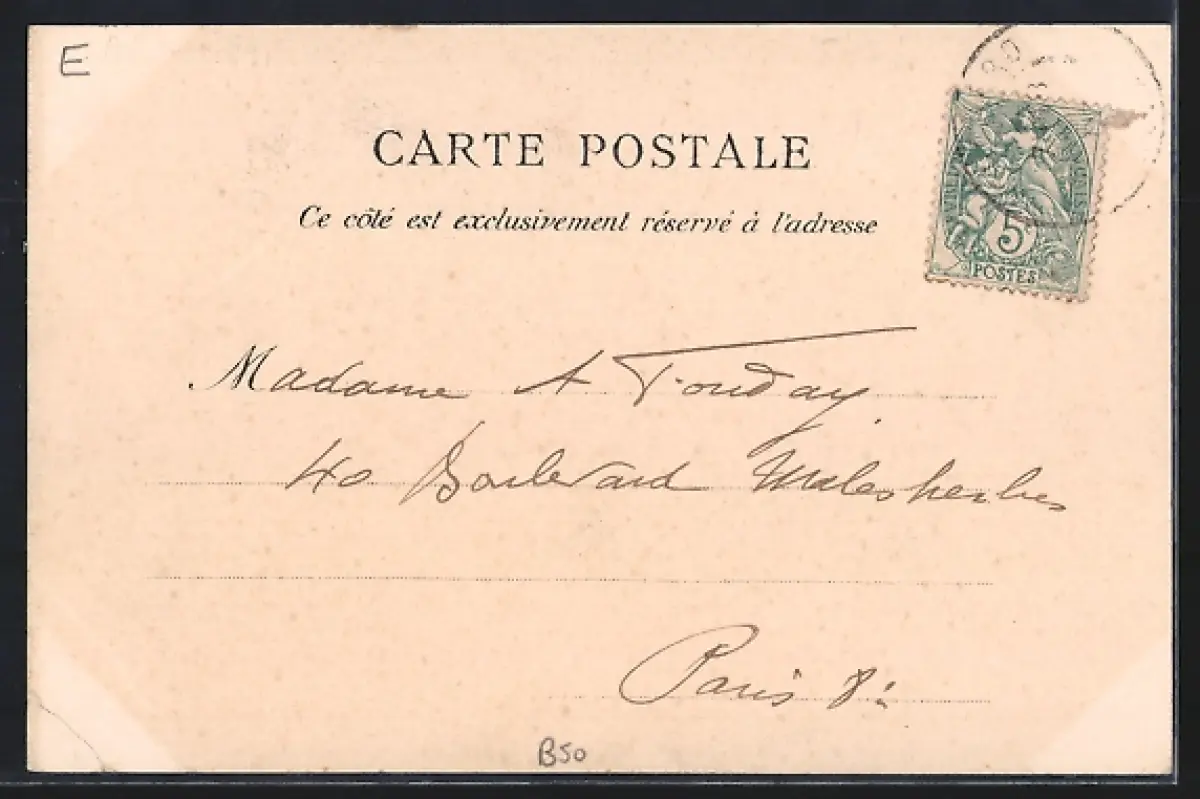 E
CARTE POSTALE
Ce côté est exclusivement réservé à l'adresse
5
POSTES
Madame A
40 Boulevard Malesherbes
Paris 8
B50